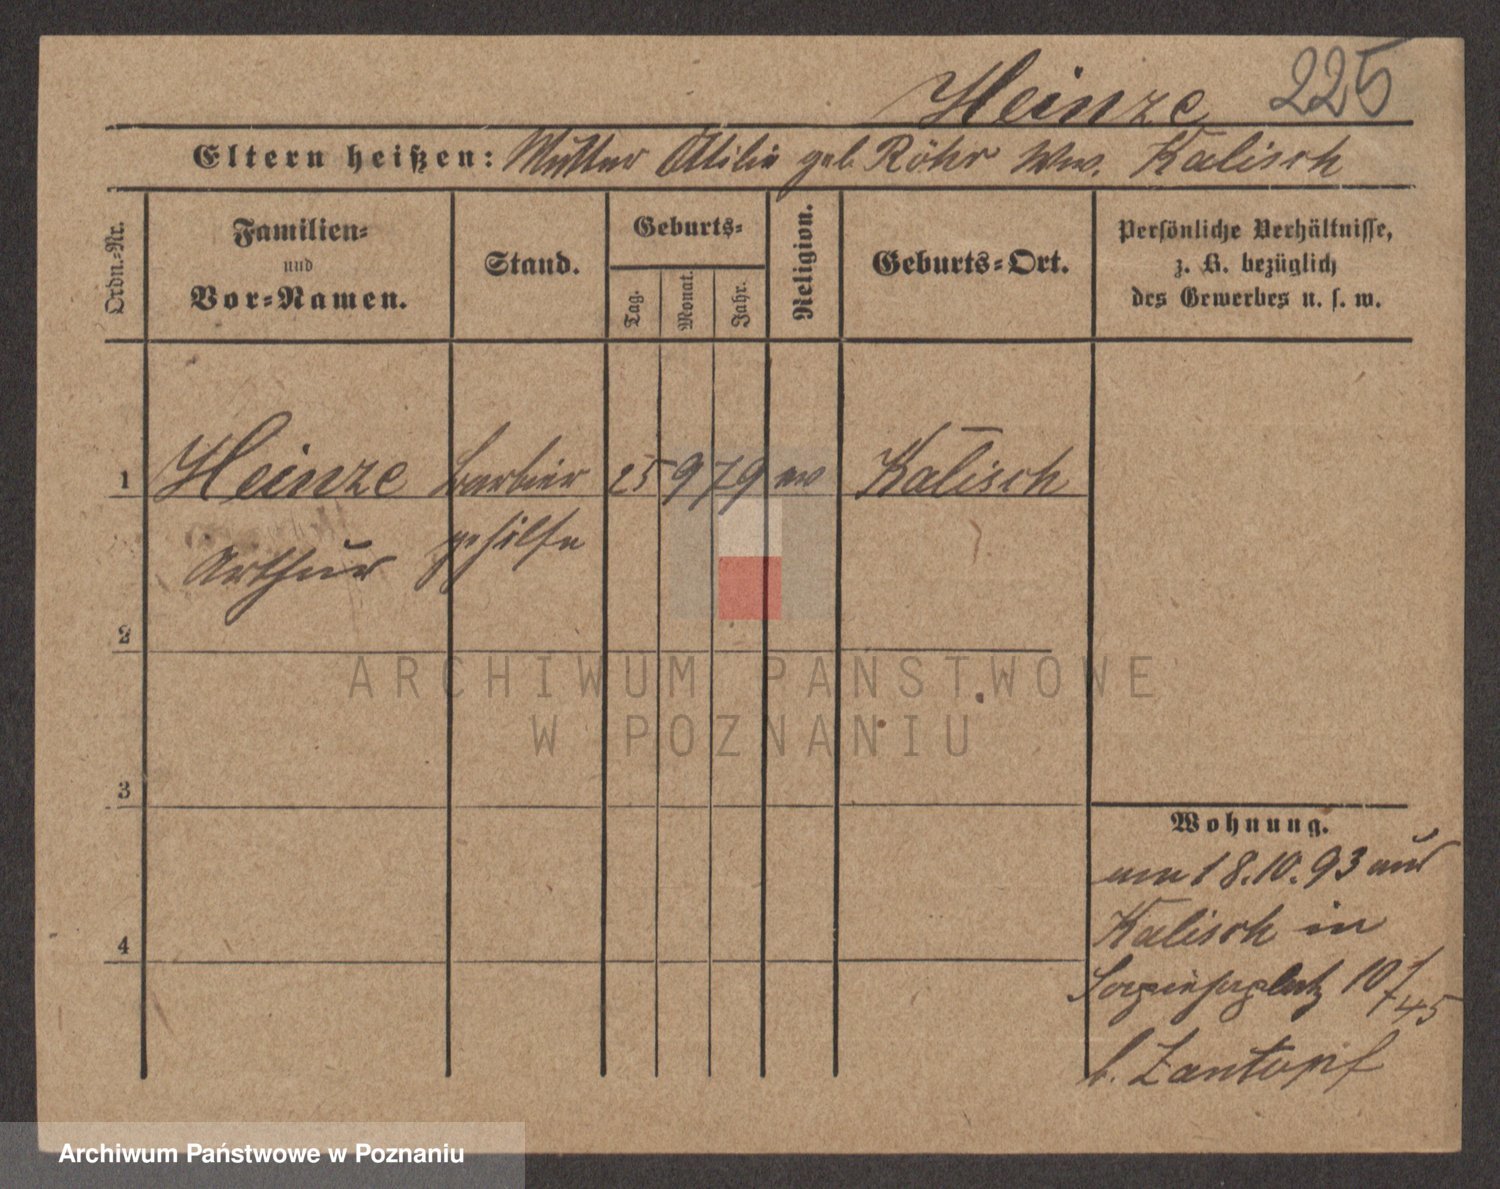 Heinze 225
Eltern heißen: Mutter Ottilie geb. Röhr Ww. Kalisch
Ordn.-Nr.
Familien-
und
Vor-Namen.
Stand.
Geburts-
Tag.
Monat.
Jahr.
Religion.
Geburts-Ort.
Persönliche Verhältnisse,
z. B. bezüglich
des Gewerbes u. s. w.
1 Heinze Barbier 25 9 79 ev Kalisch
Arthur gehilfe
2
3
4
Wohnung.
am 18.10.93 aus
Kalisch in
10/45
b. Zantopf
ARCHIWUM PAŃSTWOWE
W POZNANIU
Archiwum Państwowe w Poznaniu